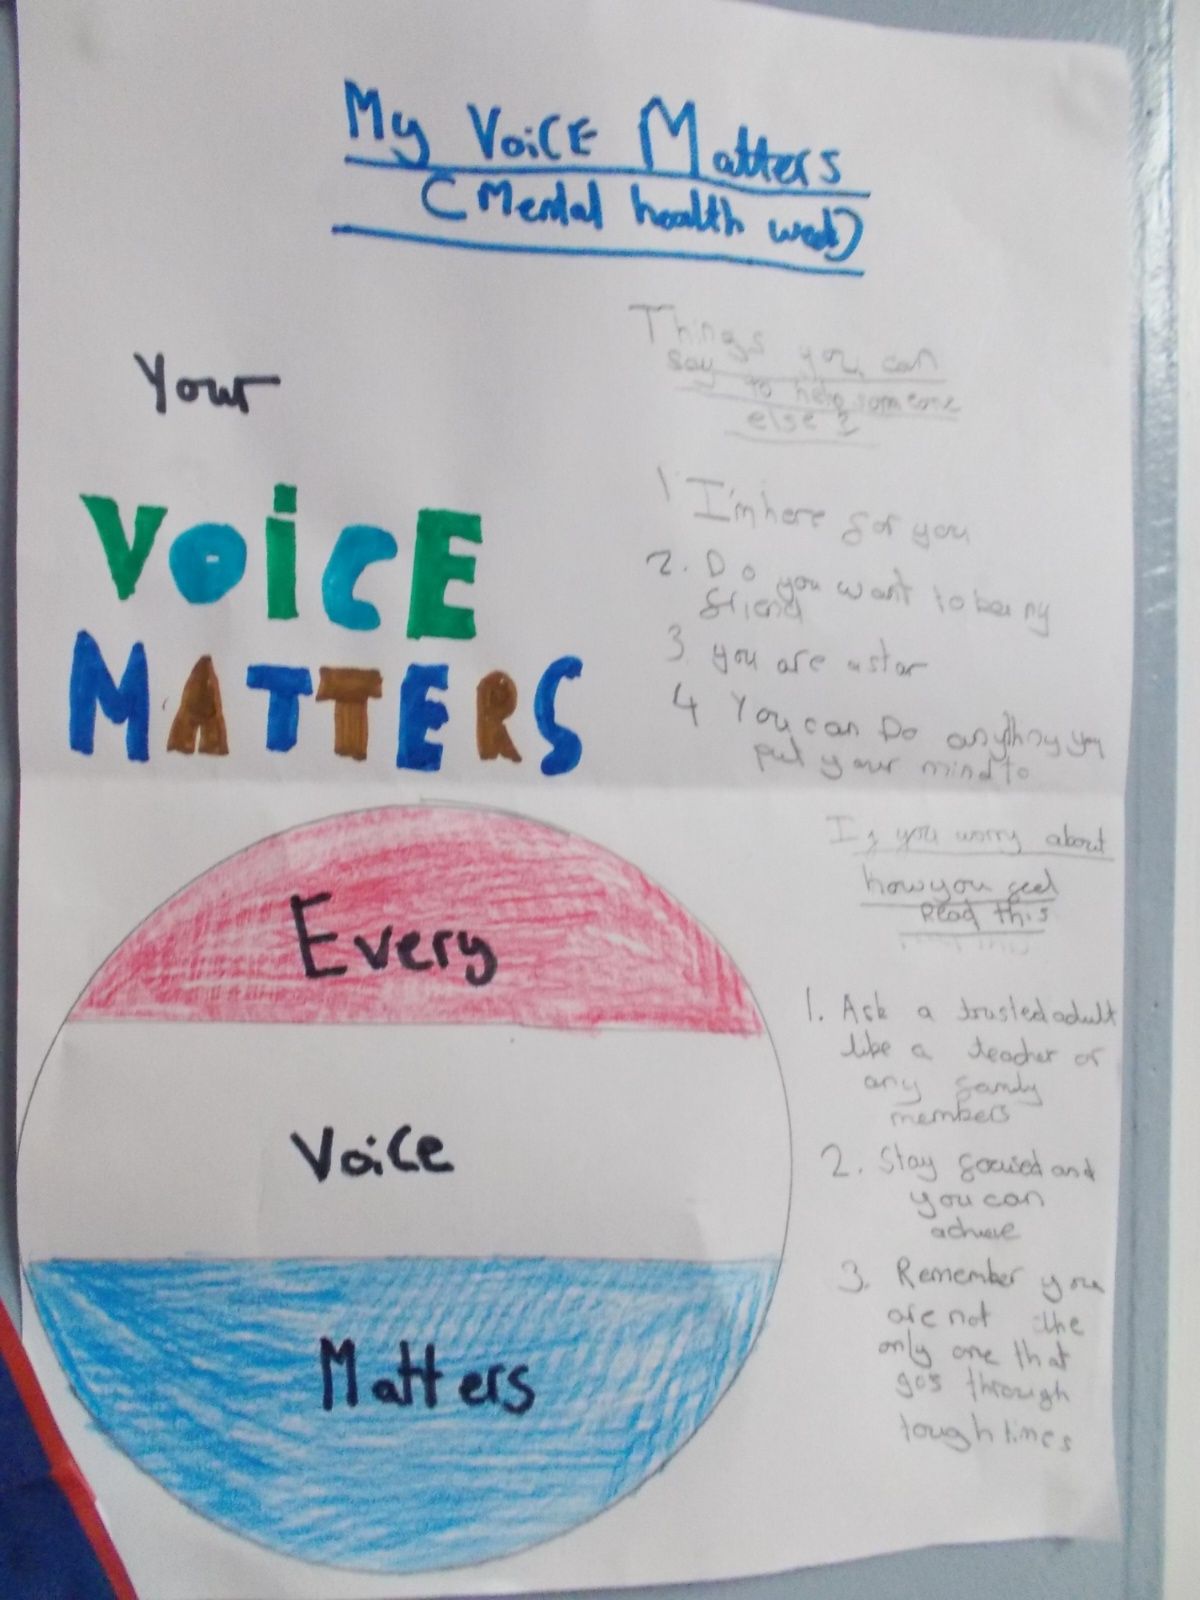 My VoiCE Matters
(Mental health week)
Your
VOiCE
MATTERS
Every
Voice
Matters
Things you can
say to help someone
else?
1 I'm here for you
2. Do you want to be my
friend
3 you are a star
4 You can Do anything you
put your mind to
If you worry about
how you feel
read this
1. Ask a trusted adult
like a teacher or
any family
members
2. Stay focused and
you can
achieve
3. Remember you
are not the
only one that
goes through
tough times